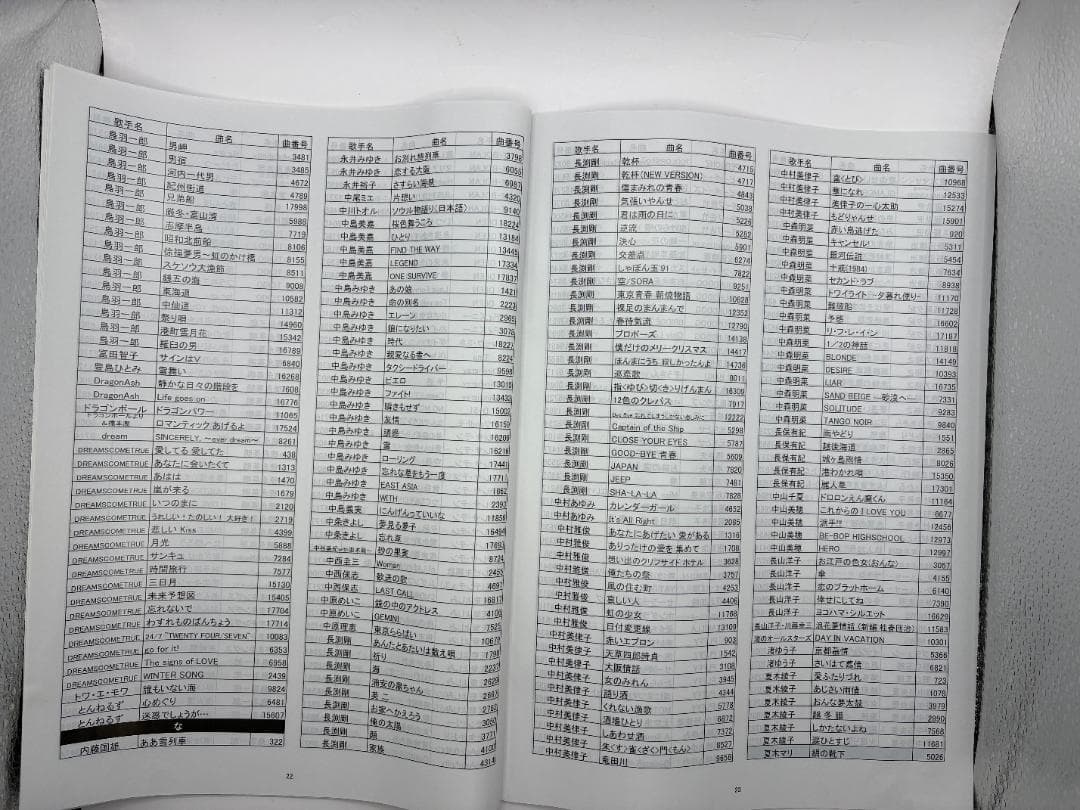 歌手名 曲名 曲番号
鳥羽一郎 男岬 3481
鳥羽一郎 男宿 3485
鳥羽一郎 河内一代男 4672
鳥羽一郎 紀州街道 4789
鳥羽一郎 兄弟船 17998
鳥羽一郎 厳冬・富山湾 5986
鳥羽一郎 志摩半島 7719
鳥羽一郎 昭和北前船 8106
鳥羽一郎 夢男～虹のかけ橋 8155
鳥羽一郎 スケソウ大漁節 8511
鳥羽一郎 銭五の海 9008
鳥羽一郎 東海道 10582
鳥羽一郎 中仙道 11312
鳥羽一郎 祭り唄 14960
鳥羽一郎 港町雪月花 15342
鳥羽一郎 羅臼の男 16789
冨田智子 サインはV 6840
豊島ひとみ 霧舞い 16268
DragonAsh 静かな日々の階段を 7608
DragonAsh Life goes on 16776
ドラゴンボール ドラゴンパワー 11065
ロマンティックあげるよ 17524
dream SINCERELY, ～ever dream～ 8261
DREAMSCOMETRUE 愛してる 愛してた 438
DREAMSCOMETRUE あなたに会いたくて 1313
DREAMSCOMETRUE あはは 1470
DREAMSCOMETRUE 嵐が来る 1679
DREAMSCOMETRUE いつのまに 2120
DREAMSCOMETRUE うれしい！たのしい！大好き！ 2719
DREAMSCOMETRUE 悲しいKiss 4399
DREAMSCOMETRUE 月光 5688
DREAMSCOMETRUE サンキュ 7284
DREAMSCOMETRUE 時間旅行 7577
DREAMSCOMETRUE 三日月 15130
DREAMSCOMETRUE 未来予想図 15405
DREAMSCOMETRUE 忘れないで 17704
DREAMSCOMETRUE わすれものばんちょう 17714
DREAMSCOMETRUE 24/7 "TWENTY FOUR/SEVEN" 10083
DREAMSCOMETRUE go for it! 6353
DREAMSCOMETRUE The signs of LOVE 6958
DREAMSCOMETRUE WINTER SONG 2439
トワ・エ・モワ 誰もいない海 9824
とんねるず 心めぐり 6481
とんねるず 迷惑でしょうが… 15607
な
内藤国雄 ああ雪列車 322
22
歌手名 曲名 曲番号
永井みゆき お別れ特列車 3798
永井みゆき 恋する大阪 6055
永井裕子 さすらい海峡 6983
中尾ミエ 片想い 4320
中川トオル ソウル物語り(日本語) 9140
中島美嘉 桜色舞うころ 18224
中島美嘉 ひとり 13184
中島美嘉 FIND THE WAY 13445
中島美嘉 LEGEND 17334
中島美嘉 ONE SURVIVE 17837
中島みゆき あの娘 1421
中島みゆき 命の別名 2223
中島みゆき エレーン 2965
中島みゆき 狼になりたい 3076
中島みゆき 時代 18227
中島みゆき 親愛なる者へ 8224
中島みゆき タクシードライバー 9598
中島みゆき ピエロ 13019
中島みゆき ファイト! 13433
中島みゆき 瞬きもせず 15002
中島みゆき 友情 16159
中島みゆき 誘惑 16209
中島みゆき 雪 16216
中島みゆき ローリング 17441
中島みゆき 忘れな草をもう一度 1771
中島みゆき EAST ASIA 1862
中島みゆき WITH 2392
中島義実 にんげんっていいな 11855
中条きよし 夢見る雰子 16464
中条きよし 忘れ草 17693
恋の果実
中西圭三 Woman
中西保志 鼓送の歌
中西保志 LAST CALL
中原めいこ 鏡の中のアクトレス
中原めいこ GEMINI
中原理恵 東京ららばい
長渕剛 あんたとあたいは数え唄
長渕剛 祈り
長渕剛 海
長渕剛 浦安の黒ちゃん
長渕剛 お家へかえろう
長渕剛 俺の太陽
長渕剛 顔
長渕剛 家族
歌手名 曲名 曲番号
長渕剛 乾杯 4715
長渕剛 乾杯(NEW VERSION) 4717
長渕剛 傷まみれの青春 4843
長渕剛 気張いやんせ 5038
長渕剛 君は雨の日に 5226
長渕剛 逆流 5262
長渕剛 決心 5901
長渕剛 交差点 6274
長渕剛 しゃぼん玉'91 7822
長渕剛 空/SORA 9251
長渕剛 東京青春朝焼物語 10628
長渕剛 裸足のまんまで 12352
長渕剛 春待気流 12790
長渕剛 プロポーズ 14138
長渕剛 僕だけのメリークリスマス 14417
長渕剛 ほんまにうち寂しかったんよ 14736
長渕剛 巡恋歌 8011
長渕剛 指<ゆび>切<き>りげんまん 16309
長渕剛 12色のクレパス 7917
長渕剛 12222
長渕剛 Captain of the Ship 5298
長渕剛 CLOSE YOUR EYES 5787
長渕剛 GOOD-BYE青春 5609
長渕剛 JAPAN 7820
長渕剛 JEEP 7481
長渕剛 SHA-LA-LA 7828
中村あゆみ カレンダーガール 4652
中村あゆみ It's All Right 2095
中村雅俊 あなたにあげたい愛がある 1316
中村雅俊 ありったけの愛を集めて 1708
中村雅俊 想い出のクリフサイドホテル 3628
中村雅俊 俺たちの祭 3757
中村雅俊 風の住む町 4253
中村雅俊 哀しい人 4406
中村雅俊 虹の少女 11768
中村雅俊 日付変更線 13109
中村美律子 赤いエプロン 903
中村美律子 天草四郎時貞 1542
中村美律子 大阪情話 3108
中村美律子 女のみれん 3945
中村美律子 語り酒 4344
中村美律子 くれない漁歌 5778
中村美律子 酒場ひとり 6872
中村美律子 しあわせ酒 7372
中村美律子 朱<す>雀<ざく>門<もん> 8527
中村美律子 竜田川 9658
23
歌手名 曲名 曲番号
中村美律子 鳶<とび> 10968
中村美律子 華になれ 12533
中村美律子 美律子の一心太助 15274
中村美律子 もどりゃんせ 15901
中森明菜 赤い鳥逃げた 920
中森明菜 キャンセル! 5311
中森明菜 銀河伝説 5454
中森明菜 十戒(1984) 7634
中森明菜 セカンド・ラブ 8938
中森明菜 トワイライト－夕暮れ便り－ 11170
中森明菜 難破船 11728
中森明菜 予感 16602
中森明菜 リ・フ・レ・イ・ン 17187
中森明菜 1/2の神話 11818
中森明菜 BLONDE 14149
中森明菜 DESIRE 10393
中森明菜 LIAR 16735
中森明菜 SAND BEIGE ―砂漠へ― 7331
中森明菜 SOLITUDE 9283
中森明菜 TANGO NOIR 9840
長保有紀 雨やどり 1551
長保有紀 越後海道 2865
長保有紀 城ヶ島雨情 8026
長保有紀 港わかれ唄 15350
長保有紀 麗人草 17301
中山千夏 ドロロンえん魔くん 11164
中山美穂 これからのI LOVE YOU 6677
中山美穂 派手!!! 12456
中山美穂 BE-BOP HIGHSCHOOL 12973
中山美穂 HERO 12997
長山洋子 お江戸の色女(おんな) 3057
長山洋子 傘 4155
長山洋子 恋のプラットホーム 6140
長山洋子 倖せにしてね 7390
長山洋子 ヨコハマ・シルエット 16629
長山洋子・川藤幸三 浪花夢情話(新編 桂春団治) 11583
渚のオールスターズ DAY IN VACATION 10301
渚ゆう子 京都慕情 5366
渚ゆう子 さいはて慕情 6821
夏木綾子 愛ふたりづれ 723
夏木綾子 あじさい雨情 1078
夏木綾子 おんな夢太鼓 3979
夏木綾子 越冬譜 2890
夏木綾子 しかたないよね 7568
夏木綾子 涙ひとすじ 11681
夏木マリ 絹の靴下 5026